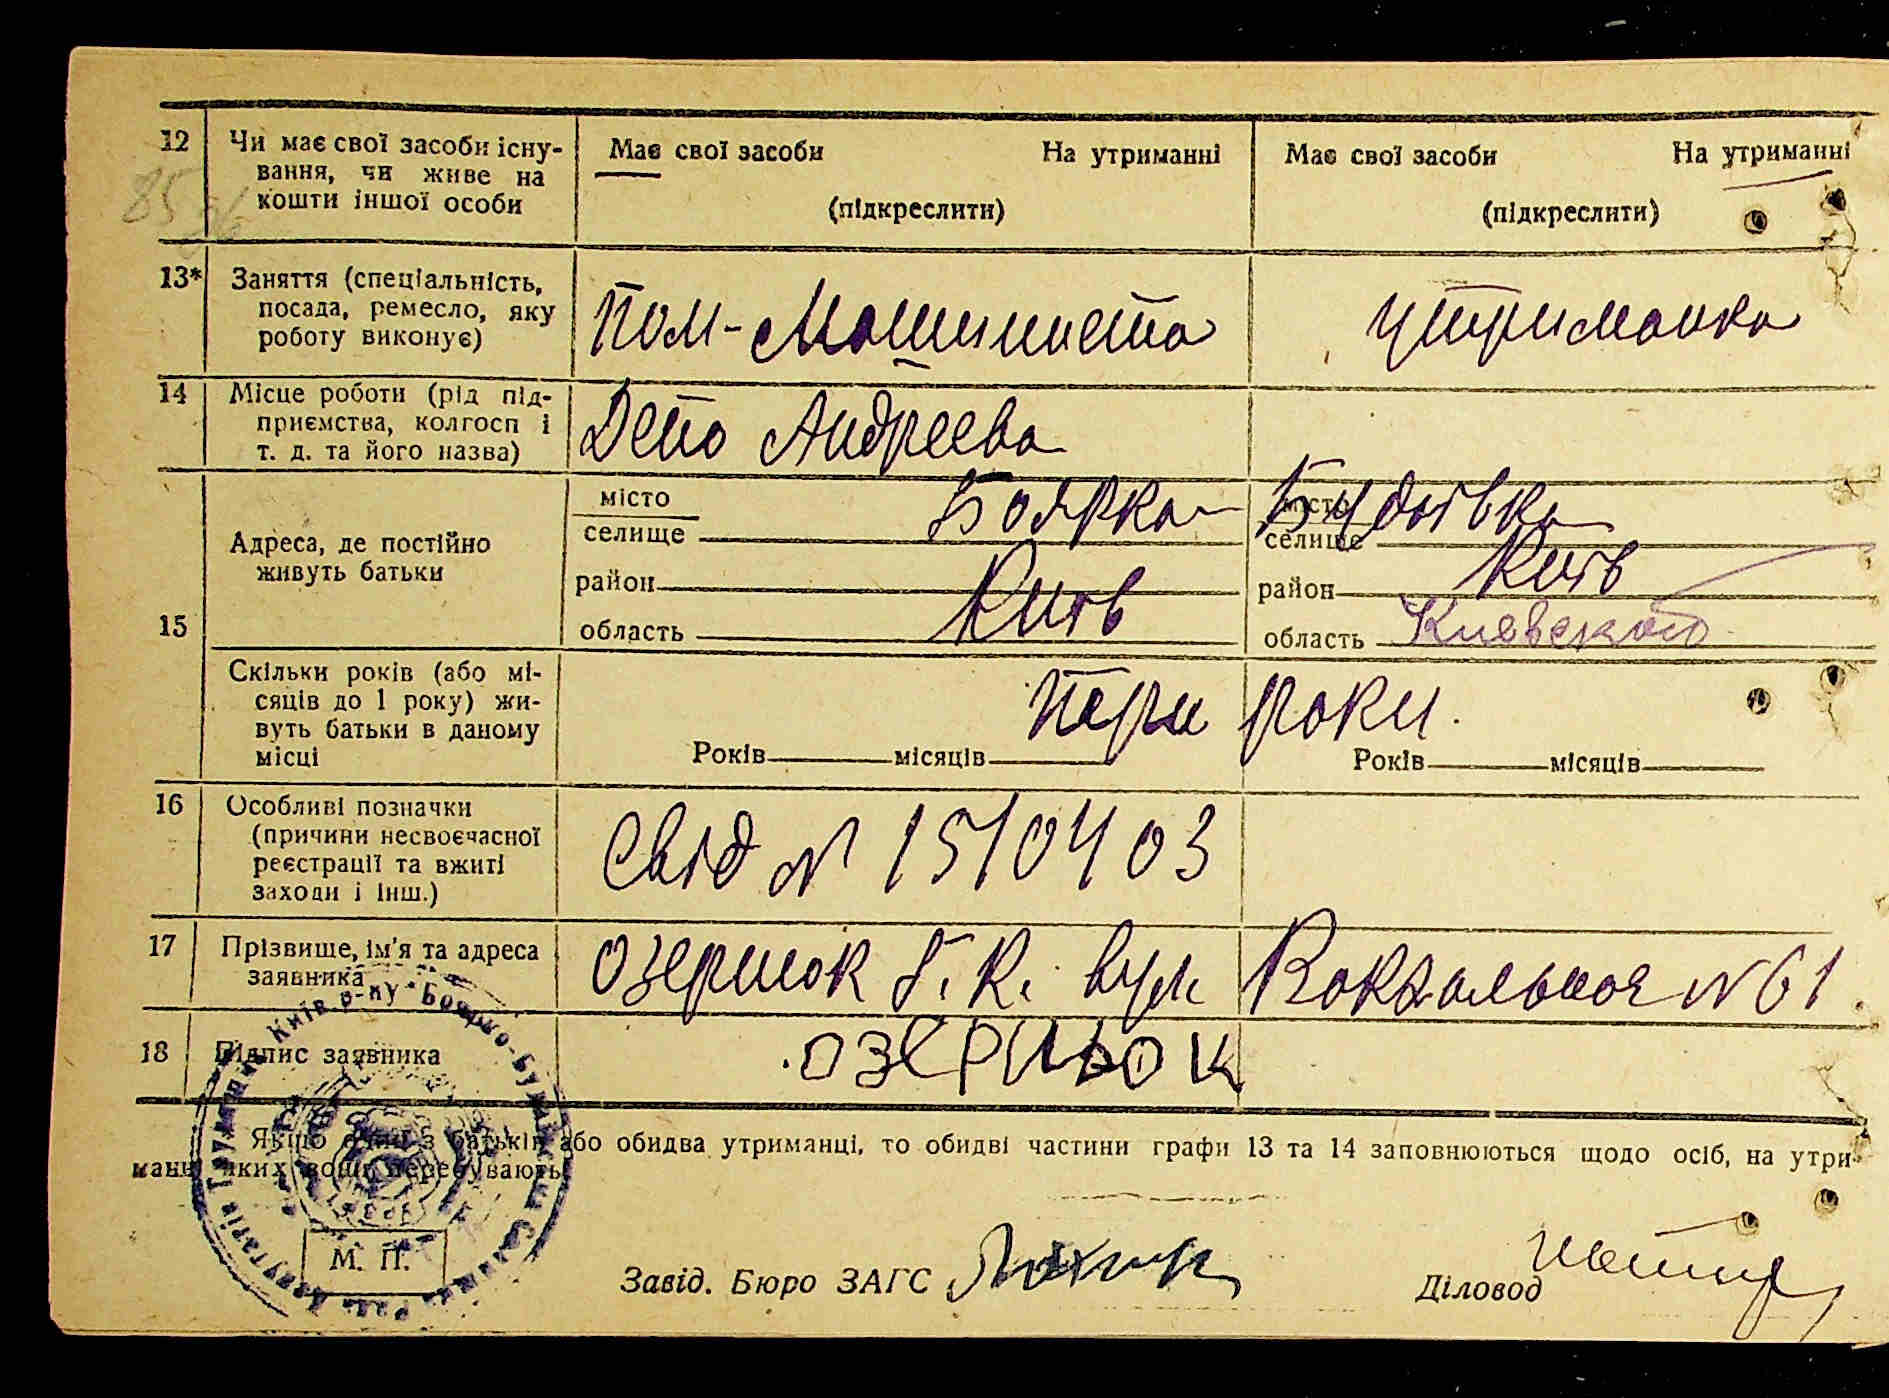 12 Чи має свої засоби існу- Має свої засоби На утриманні Має свої засоби На утриманні
85 вання, чи живе на
кошти іншої особи (підкреслити) (підкреслити)
13* Заняття (спеціальність,
посада, ремесло, яку Пом-Машиниста Утриманка
роботу виконує)
14 Місце роботи (рід під-
приємства, колгосп і Депо Андреева
т. д. та його назва)
15 Адреса, де постійно
живуть батьки
місто Боярка місто Будаївка
селище селище
район Київ район Київ
область область Киевского
Скільки років (або мі-
сяців до 1 року) жи- три роки.
вуть батьки в даному
місці Років місяців Років місяців
16 Особливі позначки
(причини несвоєчасної Свід N 1510403
реєстрації та вжиті
заходи і інш.)
17 Прізвище, ім'я та адреса Озерньок Г. К. вул Вокзальная N 61
заявника
18 Підпис заявника Озерньок
Якщо один з батьків або обидва утриманці, то обидві частини графи 13 та 14 заповнюються щодо осіб, на утри-
манні яких вони перебувають
М. П.
Завід. Бюро ЗАГС Діловод